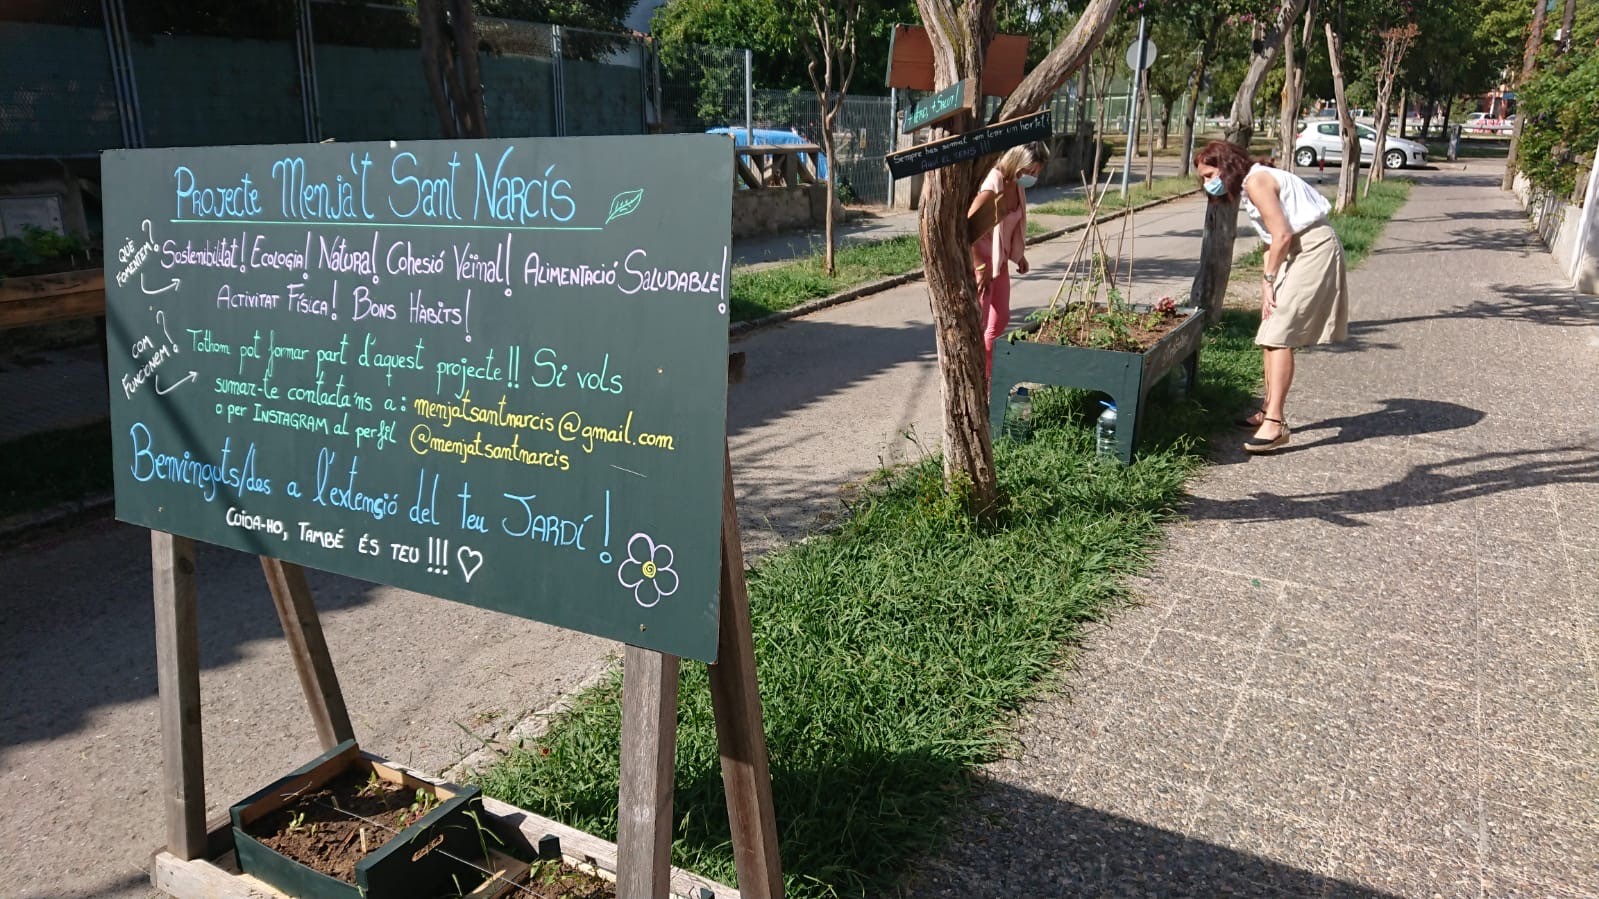 Projecte Menja't Sant Narcís
QUÈ FOMENTEM?
Sostenibilitat! Ecologia! Natura! Cohesió Veïnal! Alimentació Saludable!
Activitat Física! Bons Hàbits!
COM FUNCIONEM?
Tothom pot formar part d'aquest projecte!! Si vols
sumar-te contacta'ns a: menjatsantnarcis@gmail.com
o per INSTAGRAM al perfil @menjatsantnarcis
Benvinguts/des a l'extensió del teu JARDÍ!
CUIDA-HO, TAMBÉ ÉS TEU!!!
+ SALUT!
Sempre has somiat en tenir un hortet?
Aquí el tens!!!